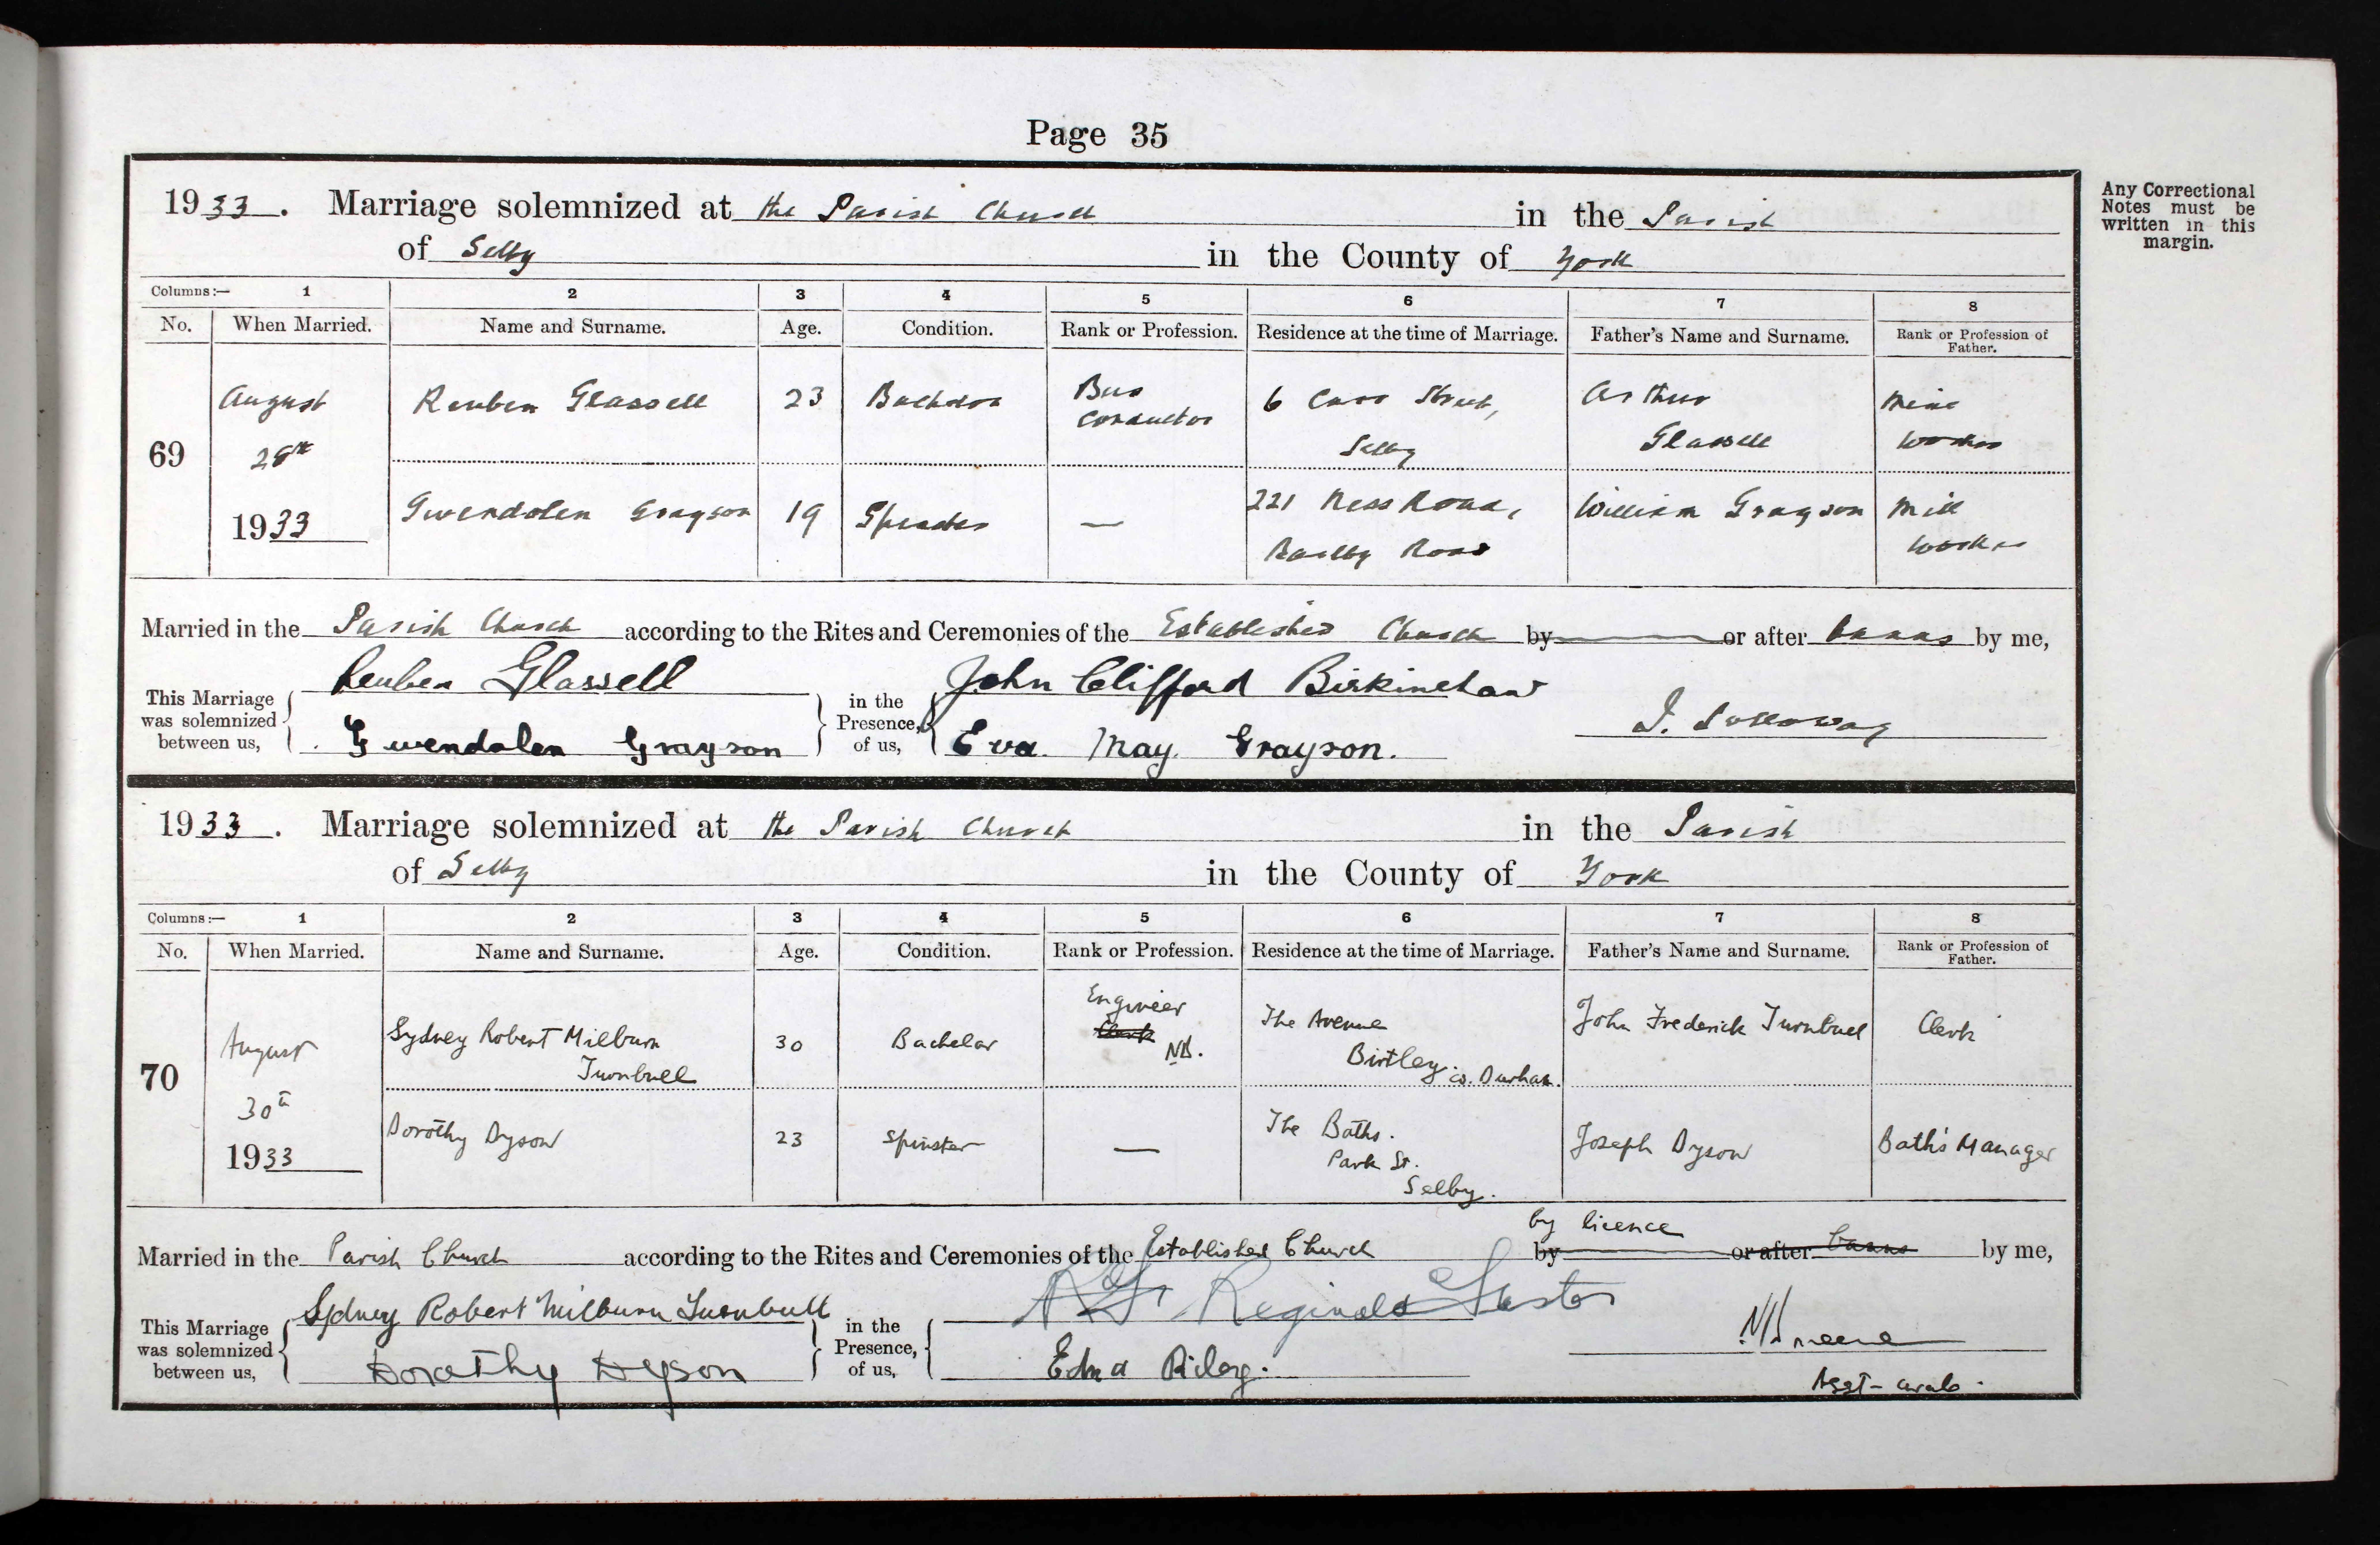 Page 35
Any Correctional
Notes must be
written in this
margin.
1933. Marriage solemnized at the Parish Church in the Parish
of Selby in the County of York
Columns:— 1 2 3 4 5 6 7 8
No. When Married. Name and Surname. Age. Condition. Rank or Profession. Residence at the time of Marriage. Father's Name and Surname. Rank or Profession of Father.
August Reuben Glassell 23 Bachelor Bus conductor 6 Carr Street, Arthur
69 28th Selby Glassell worker
1933 Gwendolen Grayson 19 Spinster — 221 Ness Road, William Grayson Mill
Barlby Road worker
Married in the Parish Church according to the Rites and Ceremonies of the Established Church by or after banns by me,
This Marriage was solemnized between us, Reuben Glassell in the Presence, of us, John Clifford Birkinshaw
Gwendolen Grayson Eva May Grayson.
1933. Marriage solemnized at the Parish Church in the Parish
of Selby in the County of York
Columns:— 1 2 3 4 5 6 7 8
No. When Married. Name and Surname. Age. Condition. Rank or Profession. Residence at the time of Marriage. Father's Name and Surname. Rank or Profession of Father.
August Sydney Robert Milburn 30 Bachelor Engineer Clerk The Avenue John Frederick Turnbull Clerk
70 Turnbull Birtley. Co. Durham.
30th Dorothy Dyson 23 Spinster — The Baths. Joseph Dyson Bath's Manager
1933 Park St.
Selby.
by licence
Married in the Parish Church according to the Rites and Ceremonies of the Established Church by or after banns by me,
This Marriage was solemnized between us, Sydney Robert Milburn Turnbull in the Presence, of us, Reginald
Dorothy Dyson Edna Riley.
Asst-